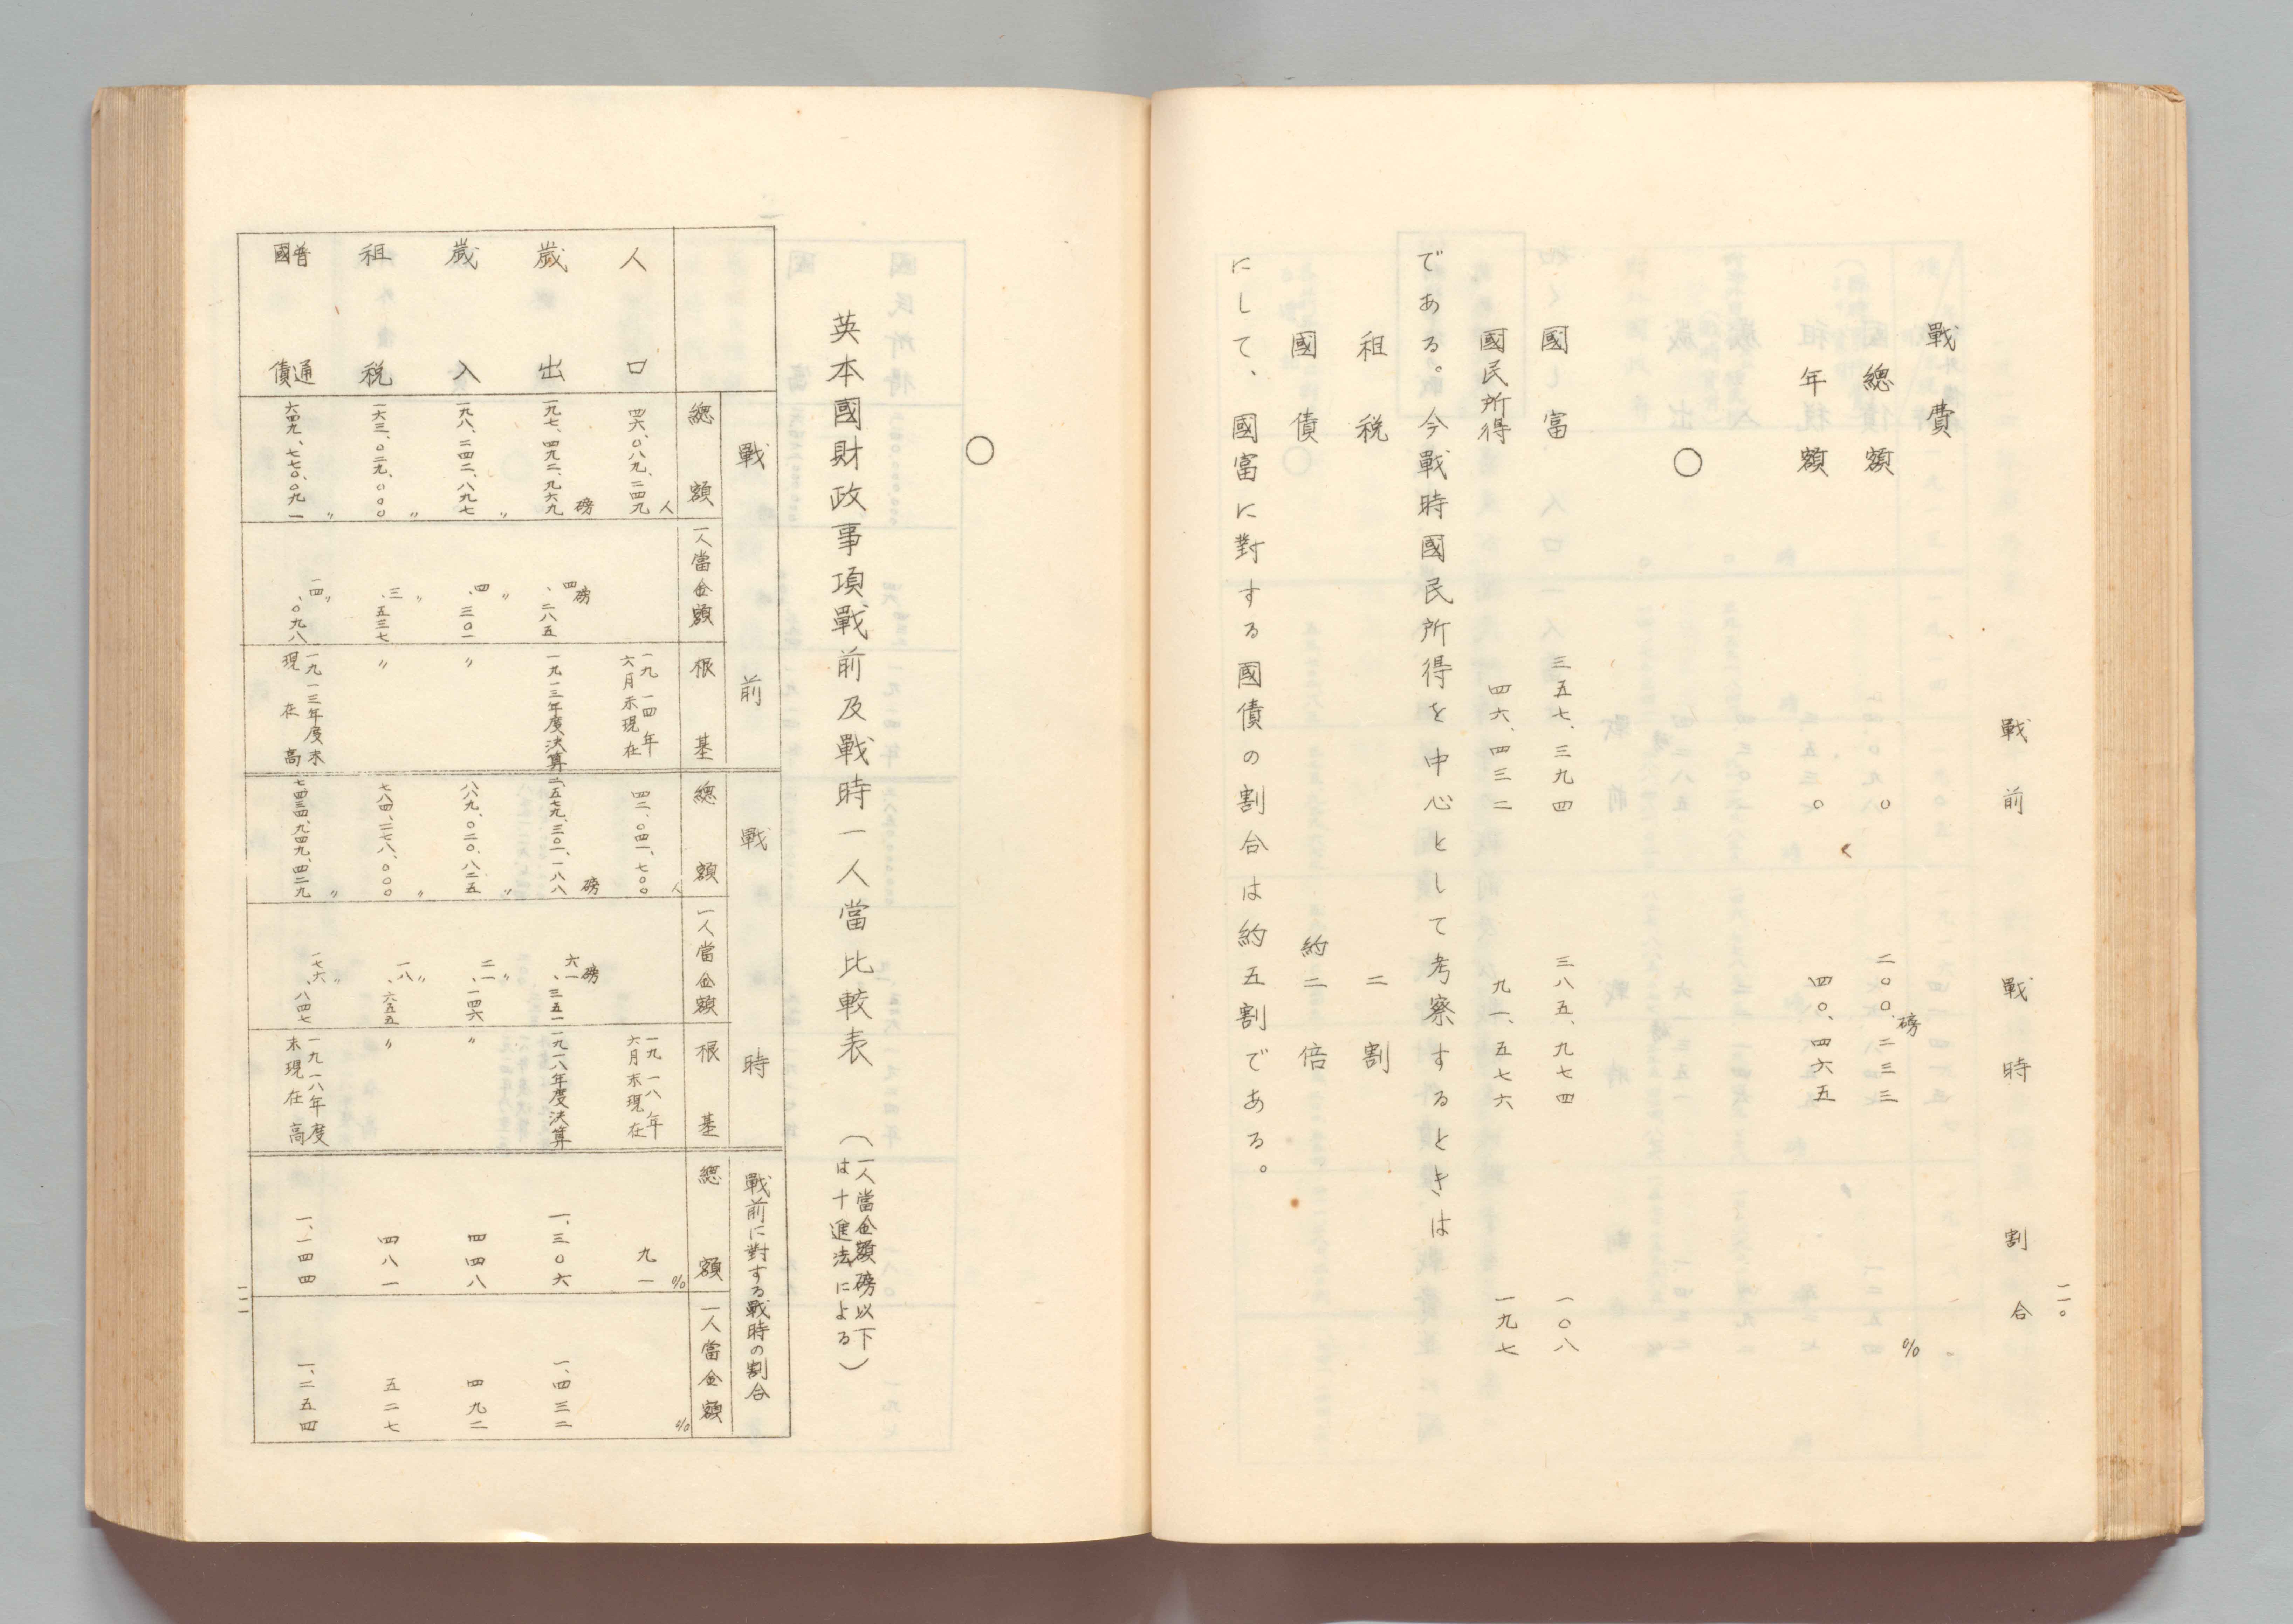 一一〇
戰前 戰時 割合
戰費
總額 〇 二〇〇、二三三磅 %
年額 〇 四〇、四六五
〇
國富 三五七、三九四 三八五、九七四 一〇八
國民所得 四六、四三二 九一、五七六 一九七
である。今戰時國民所得を中心として考察するときは
租税 二割
國債 約二倍
にして、國富に對する國債の割合は約五割である。
〇
英本國財政事項戰前及戰時一人當比較表 （一人當金額磅以下
は十進法による）
戰前 戰時 戰前に對する戰時の割合
總額 一人當金額 根基 總額 一人當金額 根基 總額 一人當金額
人口 四六、〇八九、二四九人 一九一四年六月末現在 四二、〇四一、七〇〇人 一九一八年六月末現在 九一% %
歳出 一九七、四九二、九六九磅 四、二八五磅 一九一三年度決算 二、五七九、三〇一、一八八磅 六一、三五一磅 一九一八年度決算 一、三〇六 一、四三二
歳入 一九八、二四二、八九七〃 四、三〇一〃 〃 八八九、〇二〇、八二五〃 二一、一四六〃 〃 四四八 四九二
租税 一六三、〇二九、〇〇〇〃 三、五三七〃 〃 七八四、二七八、〇〇〇〃 一八、六五五〃 〃 四八一 五二七
普通國債 六四九、七七〇、〇九一〃 一四、〇九八〃 一九一三年度末現在高 七、四三四、九四九、四二九〃 一七六、八四七〃 一九一八年度末現在高 一、一四四 一、二五四
一一一